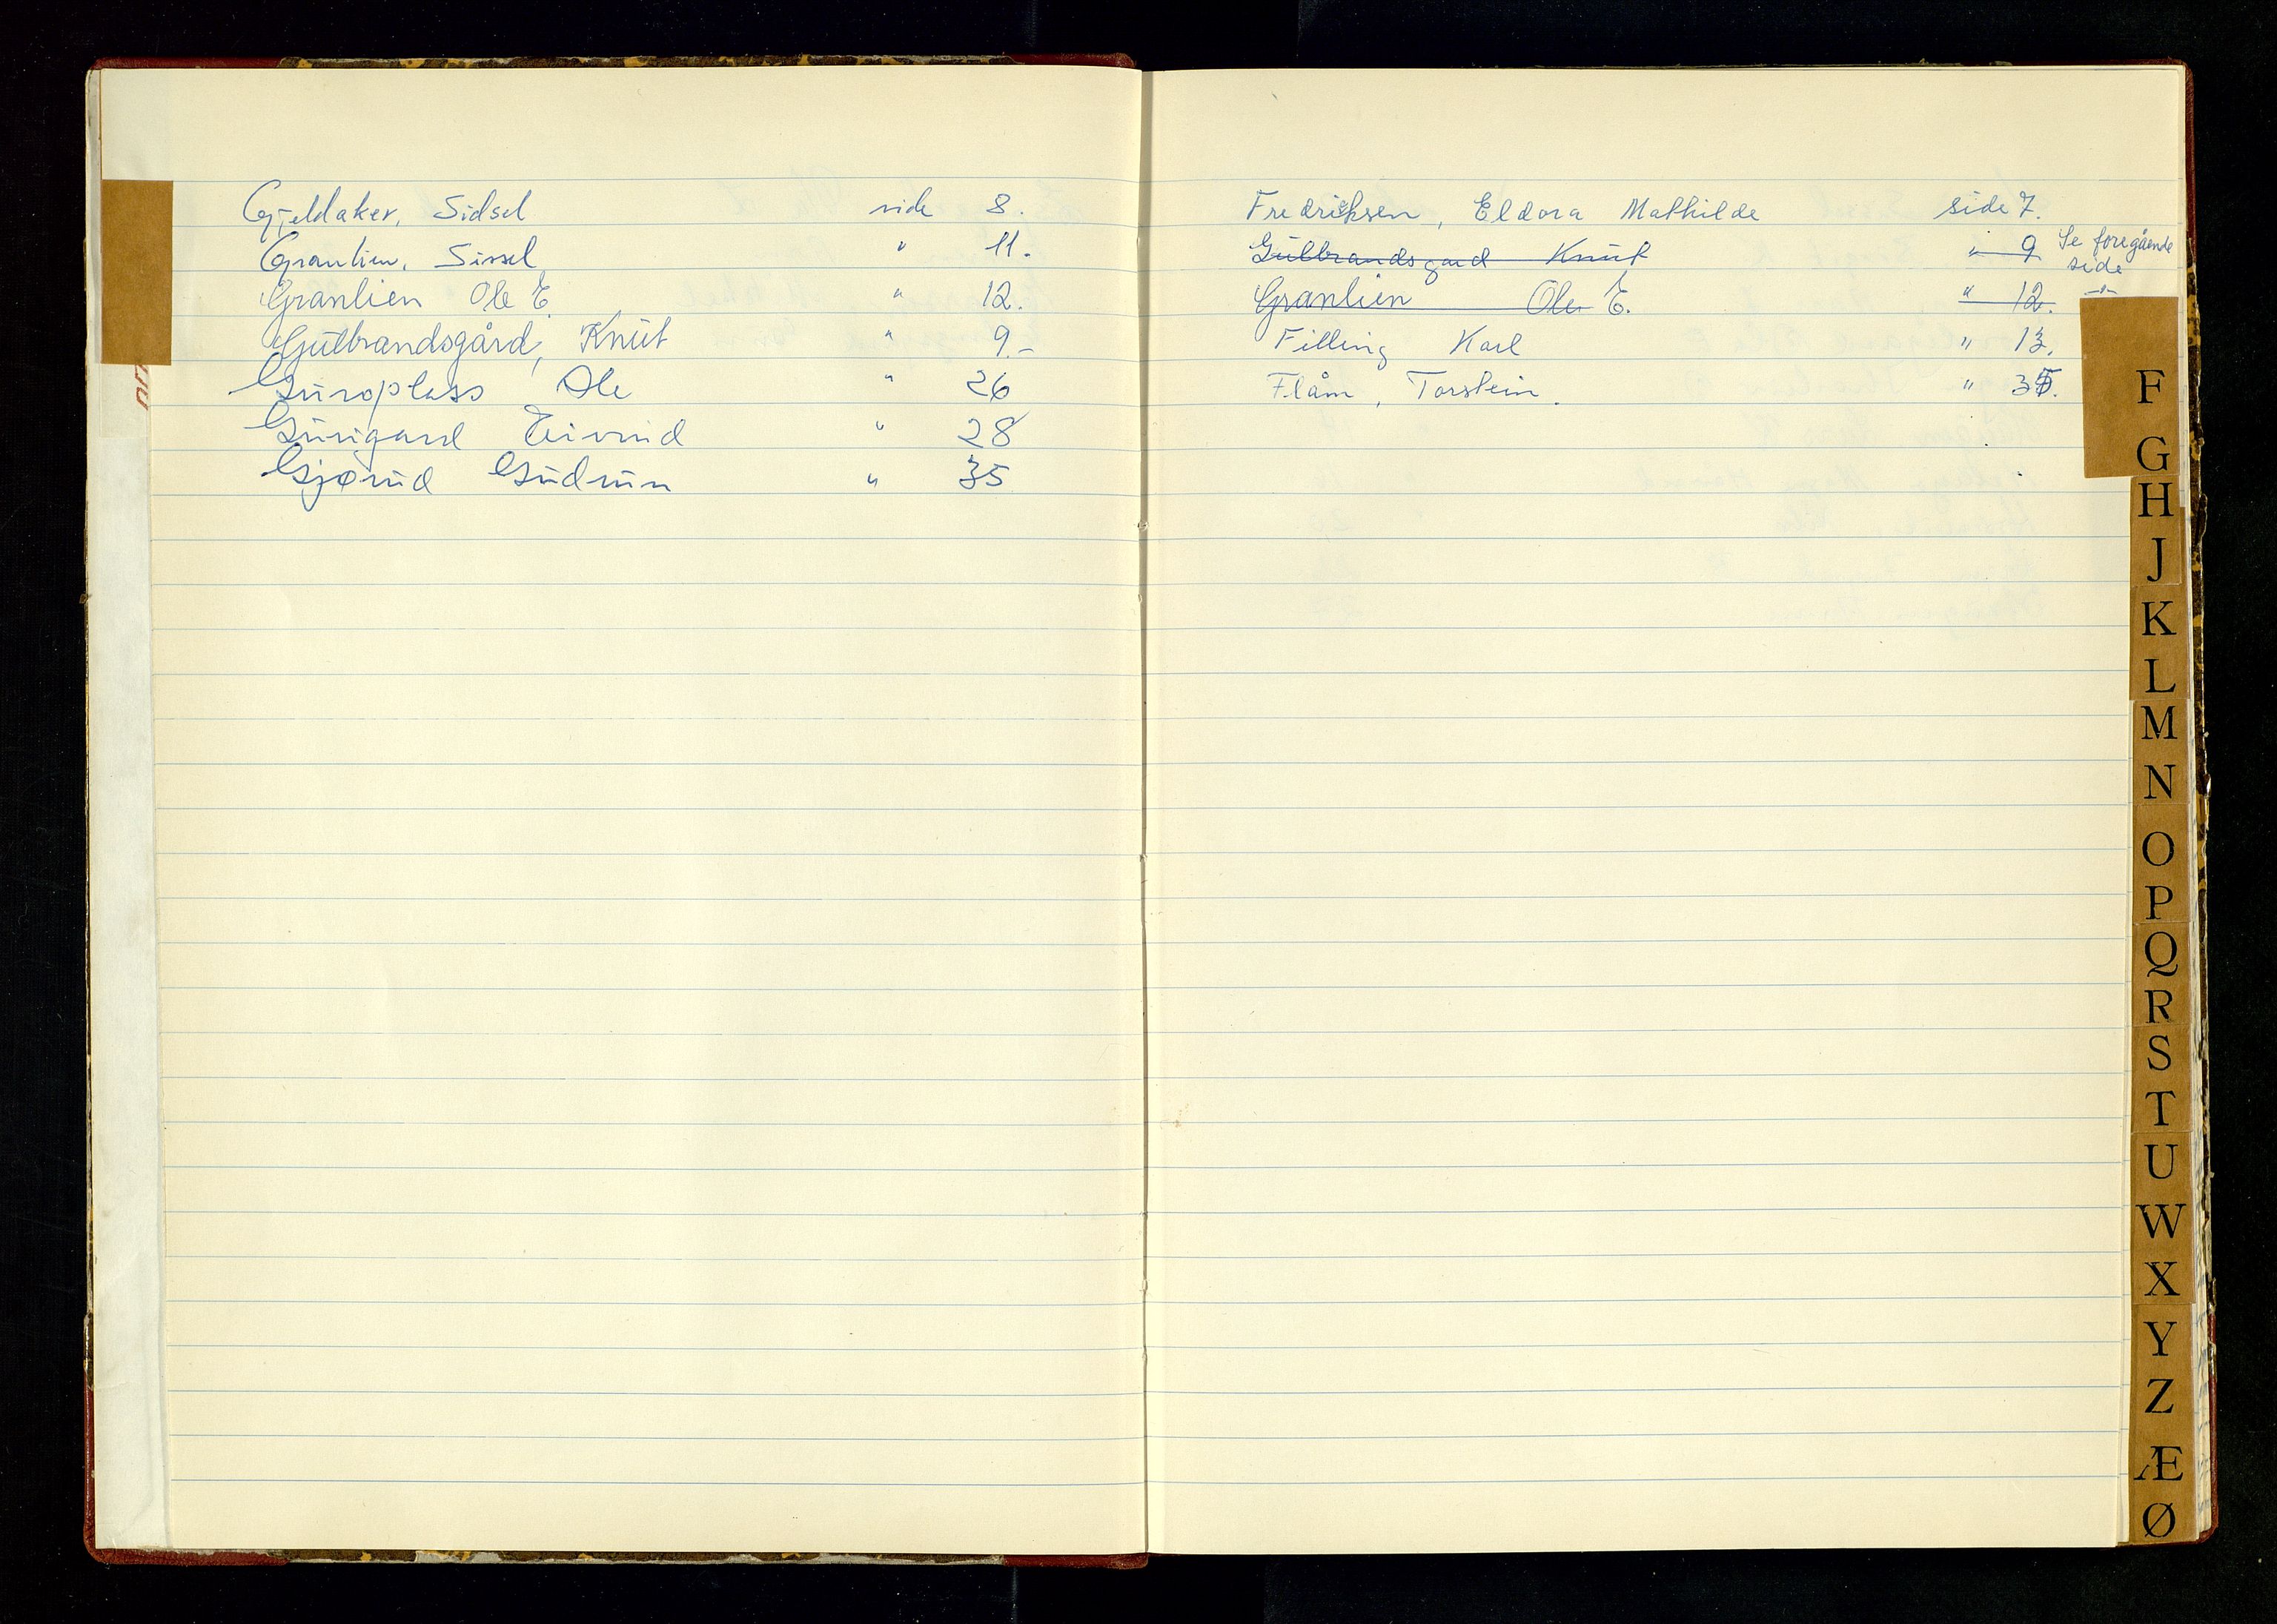 Gjeldaker, Sidsel side 8.
Granlien, Sissel " 11.
Granlien Ole E. " 12.
Gulbrandsgård, Knut " 9.-
Guroplass Ole " 26
Gurigard Eivind " 28
Gjørud Gudrun " 35
Fredriksen, Eldora Mathilde side 7.
Gulbrandsgard Knut " 9 Se foregående
side
Granlien Ole E. " 12. -"-
Filling Karl " 13.
Flåm, Torstein. " 35.
F
G
H
J
K
L
M
N
O
P
Q
R
S
T
U
W
X
Y
Z
Æ
Ø